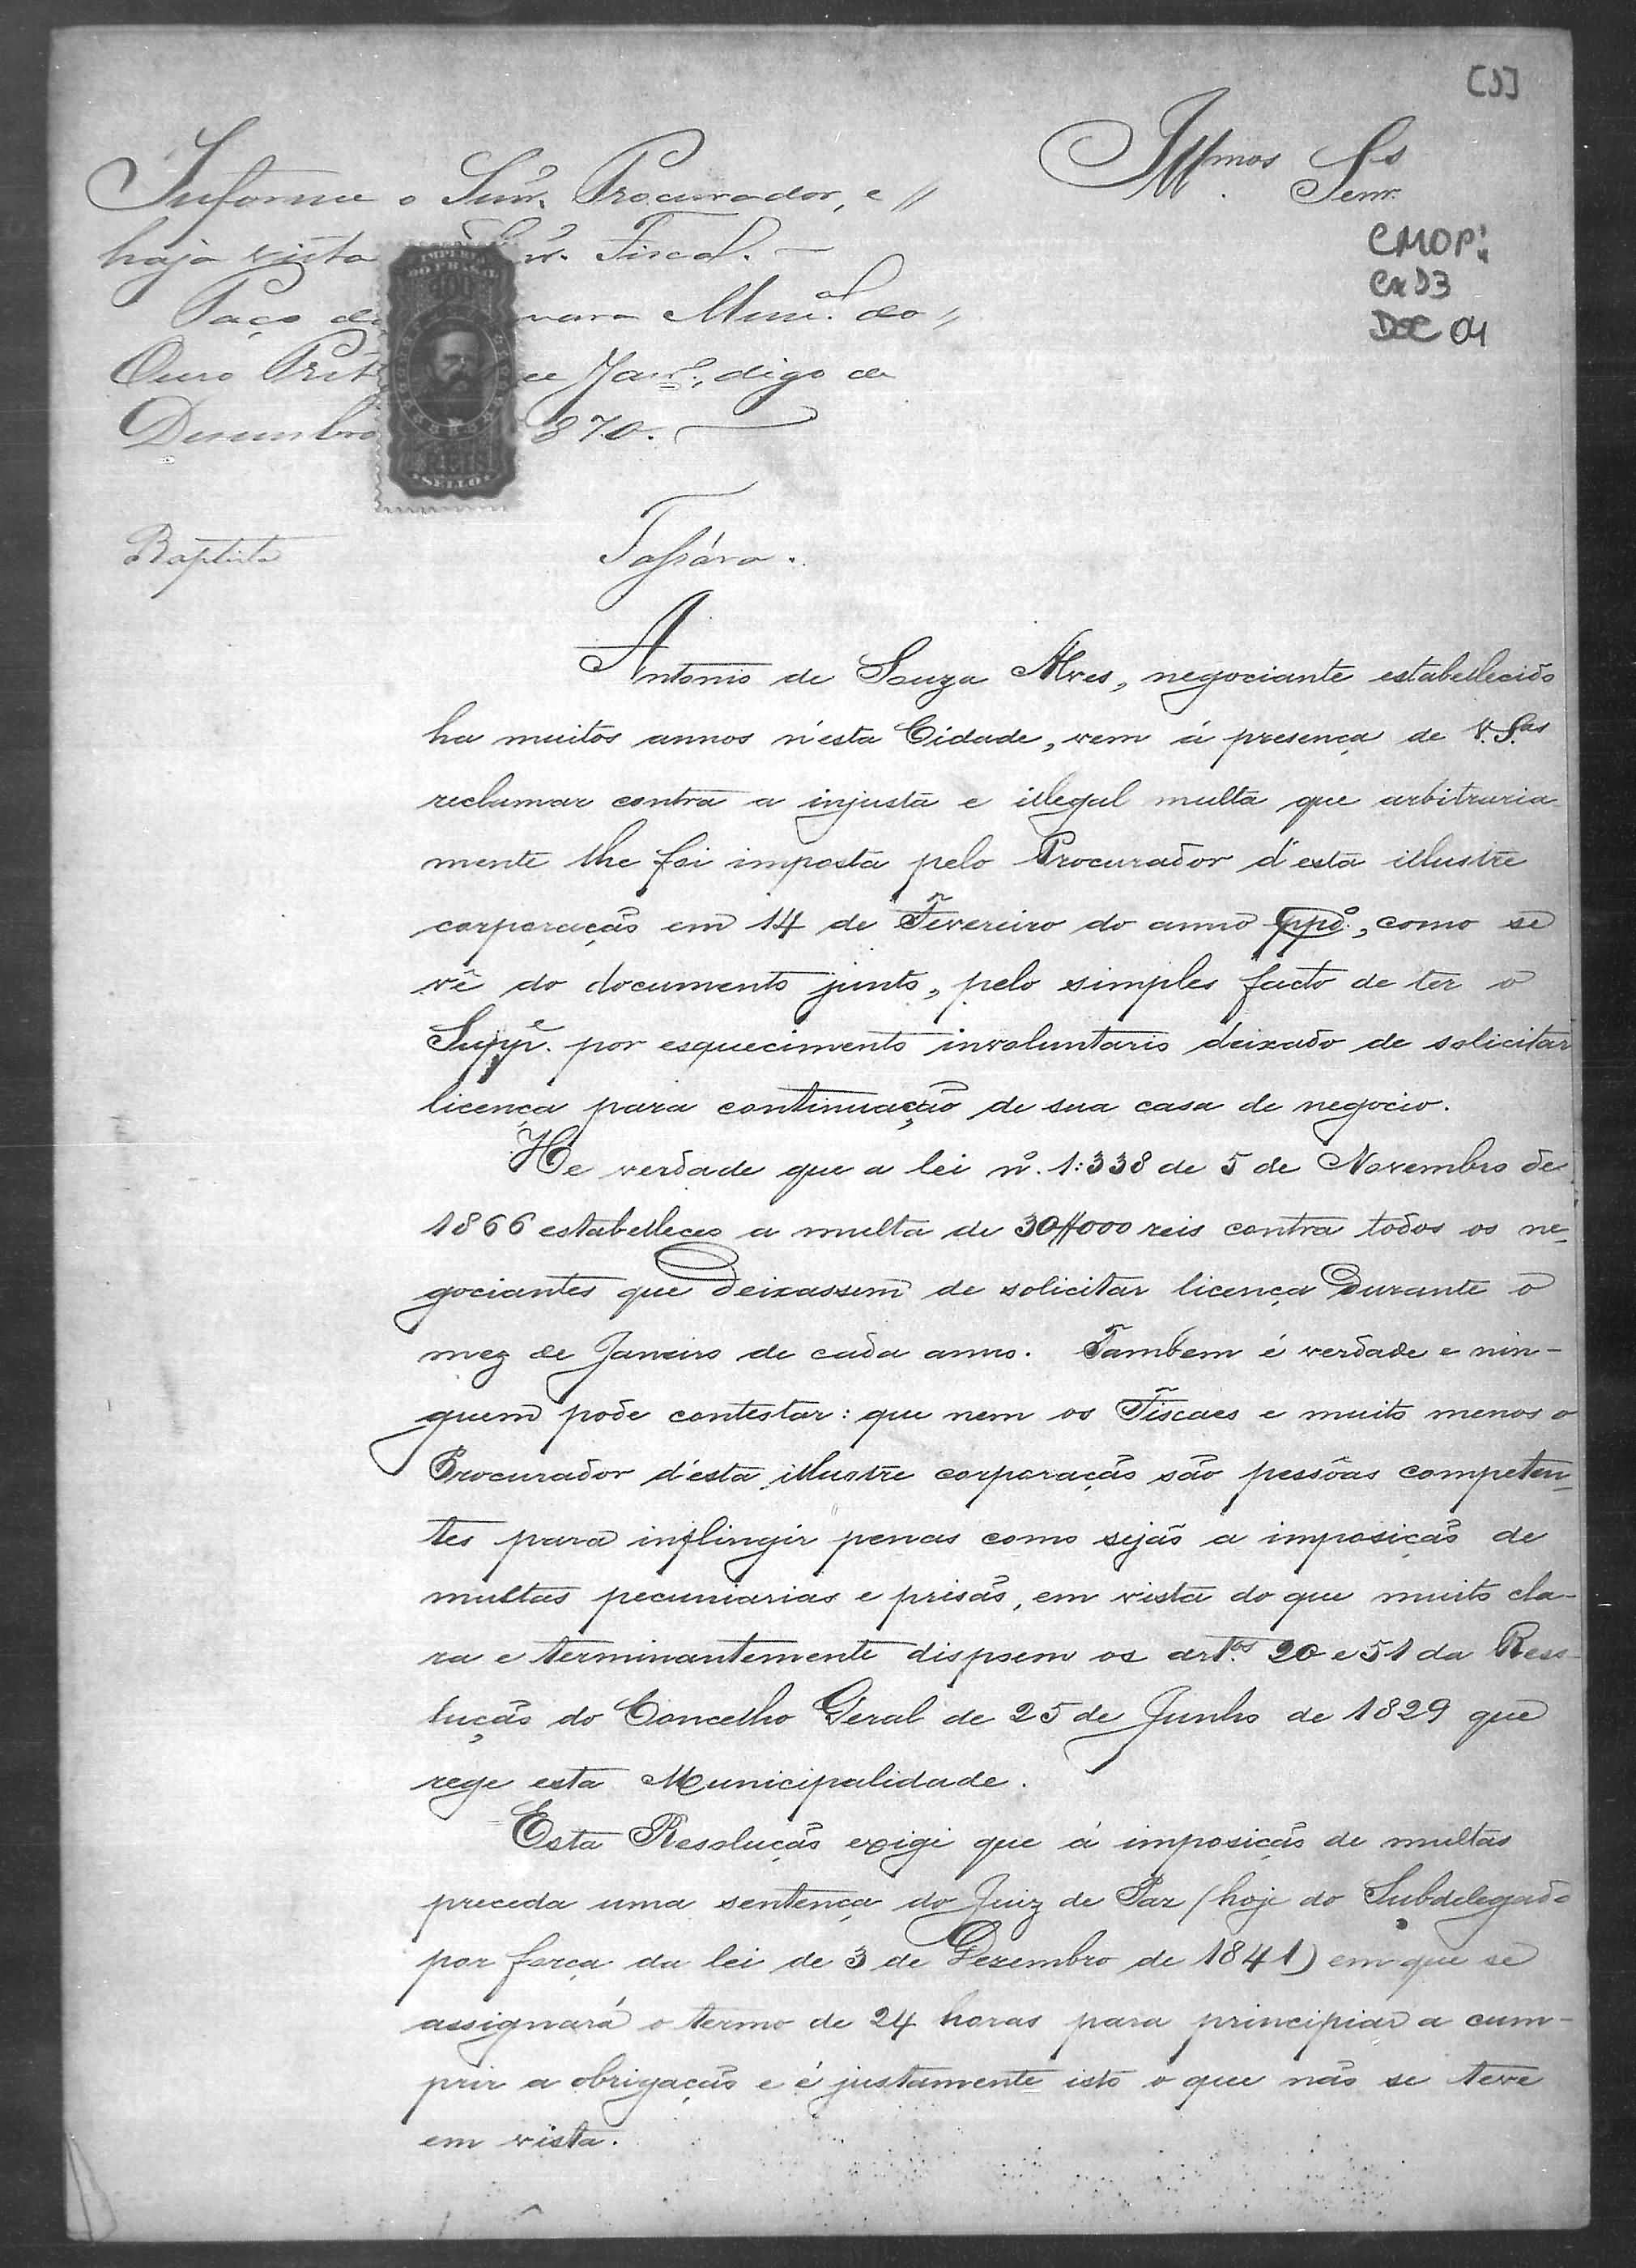 [1]
Illmos Srs
Senr.
CMOP:
Cx 03
DOC 04
Informe o Snr. Procurador, e
haja vista Snr. Fiscal.
Paço da mara Munal. do
Ouro Prêt de Janro., digo de
Desembro 870.
IMPERIO
DO BRASIL
SELLO
Baptista
Tassára.
Antonio de Souza Alves, negociante estabellecido
ha muitos annos n'esta Cidade, vem á presença de V. Sas
reclamar contra a injusta e illegal multa que arbitraria
mente lhe foi imposta pelo Procurador d'esta illustre
corporação em 14 de Fevereiro do anno ppdo., como se
vê do documento junto, pelo simples facto de ter o
Suppe. por esquecimento involuntario deixado de solicitar
licença para continuação de sua casa de negocio.
He verdade que a lei nº. 1:338 de 5 de Novembro de
1866 estabelleceo a multa de 30#000 reis contra todos os ne-
gociantes que deixassem de solicitar licença durante o
mez de Janeiro de cada anno. Tambem é verdade e nin-
guem pode contestar: que nem os Fiscaes e muito menos o
Procurador d'esta illustre corporação são pessôas competen-
tes para inflingir penas como sejão a imposição de
multas pecuniarias e prisão, em vista do que muito cla-
ra e terminantemente dispoem os artos. 20 e 51 da Reso-
lução do Concelho Geral de 25 de Junho de 1829 que
rege esta Municipalidade.
Esta Resolução exigi que á imposição de multas
preceda uma sentença do Juiz de Paz (hoje do Subdelegado
por força da lei de 3 de Dezembro de 1841) em que se
assignará o termo de 24 horas para principiar a cum-
prir a obrigação e é justamente isto o que não se teve
em vista.